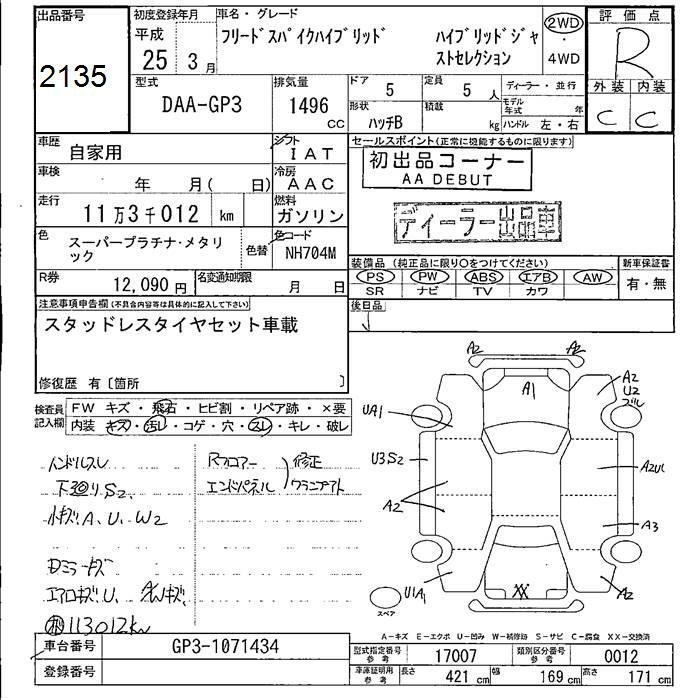 出品番号
2135
初度登録年月
平成
25 3月
車名・グレード
フリードスパイクハイブリッド
ハイブリッドジャ
ストセレクション
2WD
・
4WD
評価点
R
外装 内装
C C
型式
DAA-GP3
排気量
1496
CC
ドア
5
定員
5 人
ディーラー・並行
形状
ハッチB
積載
kg
モデル年式 年
ハンドル 左・右
車歴
自家用
シフト
IAT
車検
年 月( 日)
冷房
AAC
走行
11万3千012 km
燃料
ガソリン
色
スーパープラチナ・メタリ
ック
色替
色コード
NH704M
R券
12,090円
名変通知期限
月 日
セールスポイント(正常に機能するものに限ります)
初出品コーナー
AA DEBUT
ディーラー出品車
装備品(純正品に限り〇をつけてください)
PS PW ABS エアB AW
SR ナビ TV カワ
新車保証書
有・無
後日品
注意事項申告欄(不具合内容等は具体的に記入して下さい)
スタッドレスタイヤセット車載
修復歴 有〔箇所 〕
検査員
記入欄
FW キズ・飛石・ヒビ割・リペア跡・×要
内装 キズ・汚れ・コゲ・穴・スレ・キレ・破レ
ハンドルスレ
下廻りS2
小キズA、U、W2
Dミラーキズ
エアロキズU、AWキズ
113012km
Rフロアー
エンドパネル
修正
A2 A2
A1
A2
U2
UA1
U3S2
A2
A3
U1A1
XX
A2
スペア
A-キズ E-エクボ U-凹み W-補修跡 S-サビ C-腐食 XX-交換済
車台番号
GP3-1071434
登録番号
型式指定番号
参考
17007
類別区分番号
参考
0012
車庫証明用
参考
長さ 421 cm 幅 169 cm 高さ 171 cm